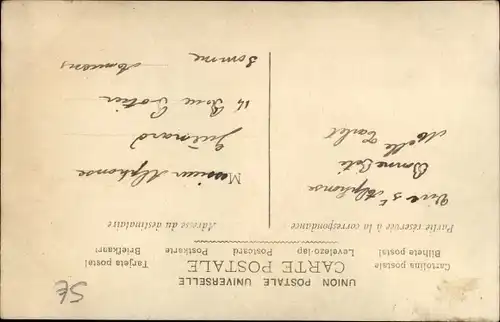 UNION POSTALE UNIVERSELLE
CARTE POSTALE
Cartolina postale Levelezo-lap Postcard Postkarte Tarjeta postal
Bilhete postal Briefkaart
Partie réservée à la correspondance
Vive St Alphonse
Bonne Fête
Melle
Adresse du destinataire
Monsieur Alphonse
Guénard
14 Rue
Amiens
Somme